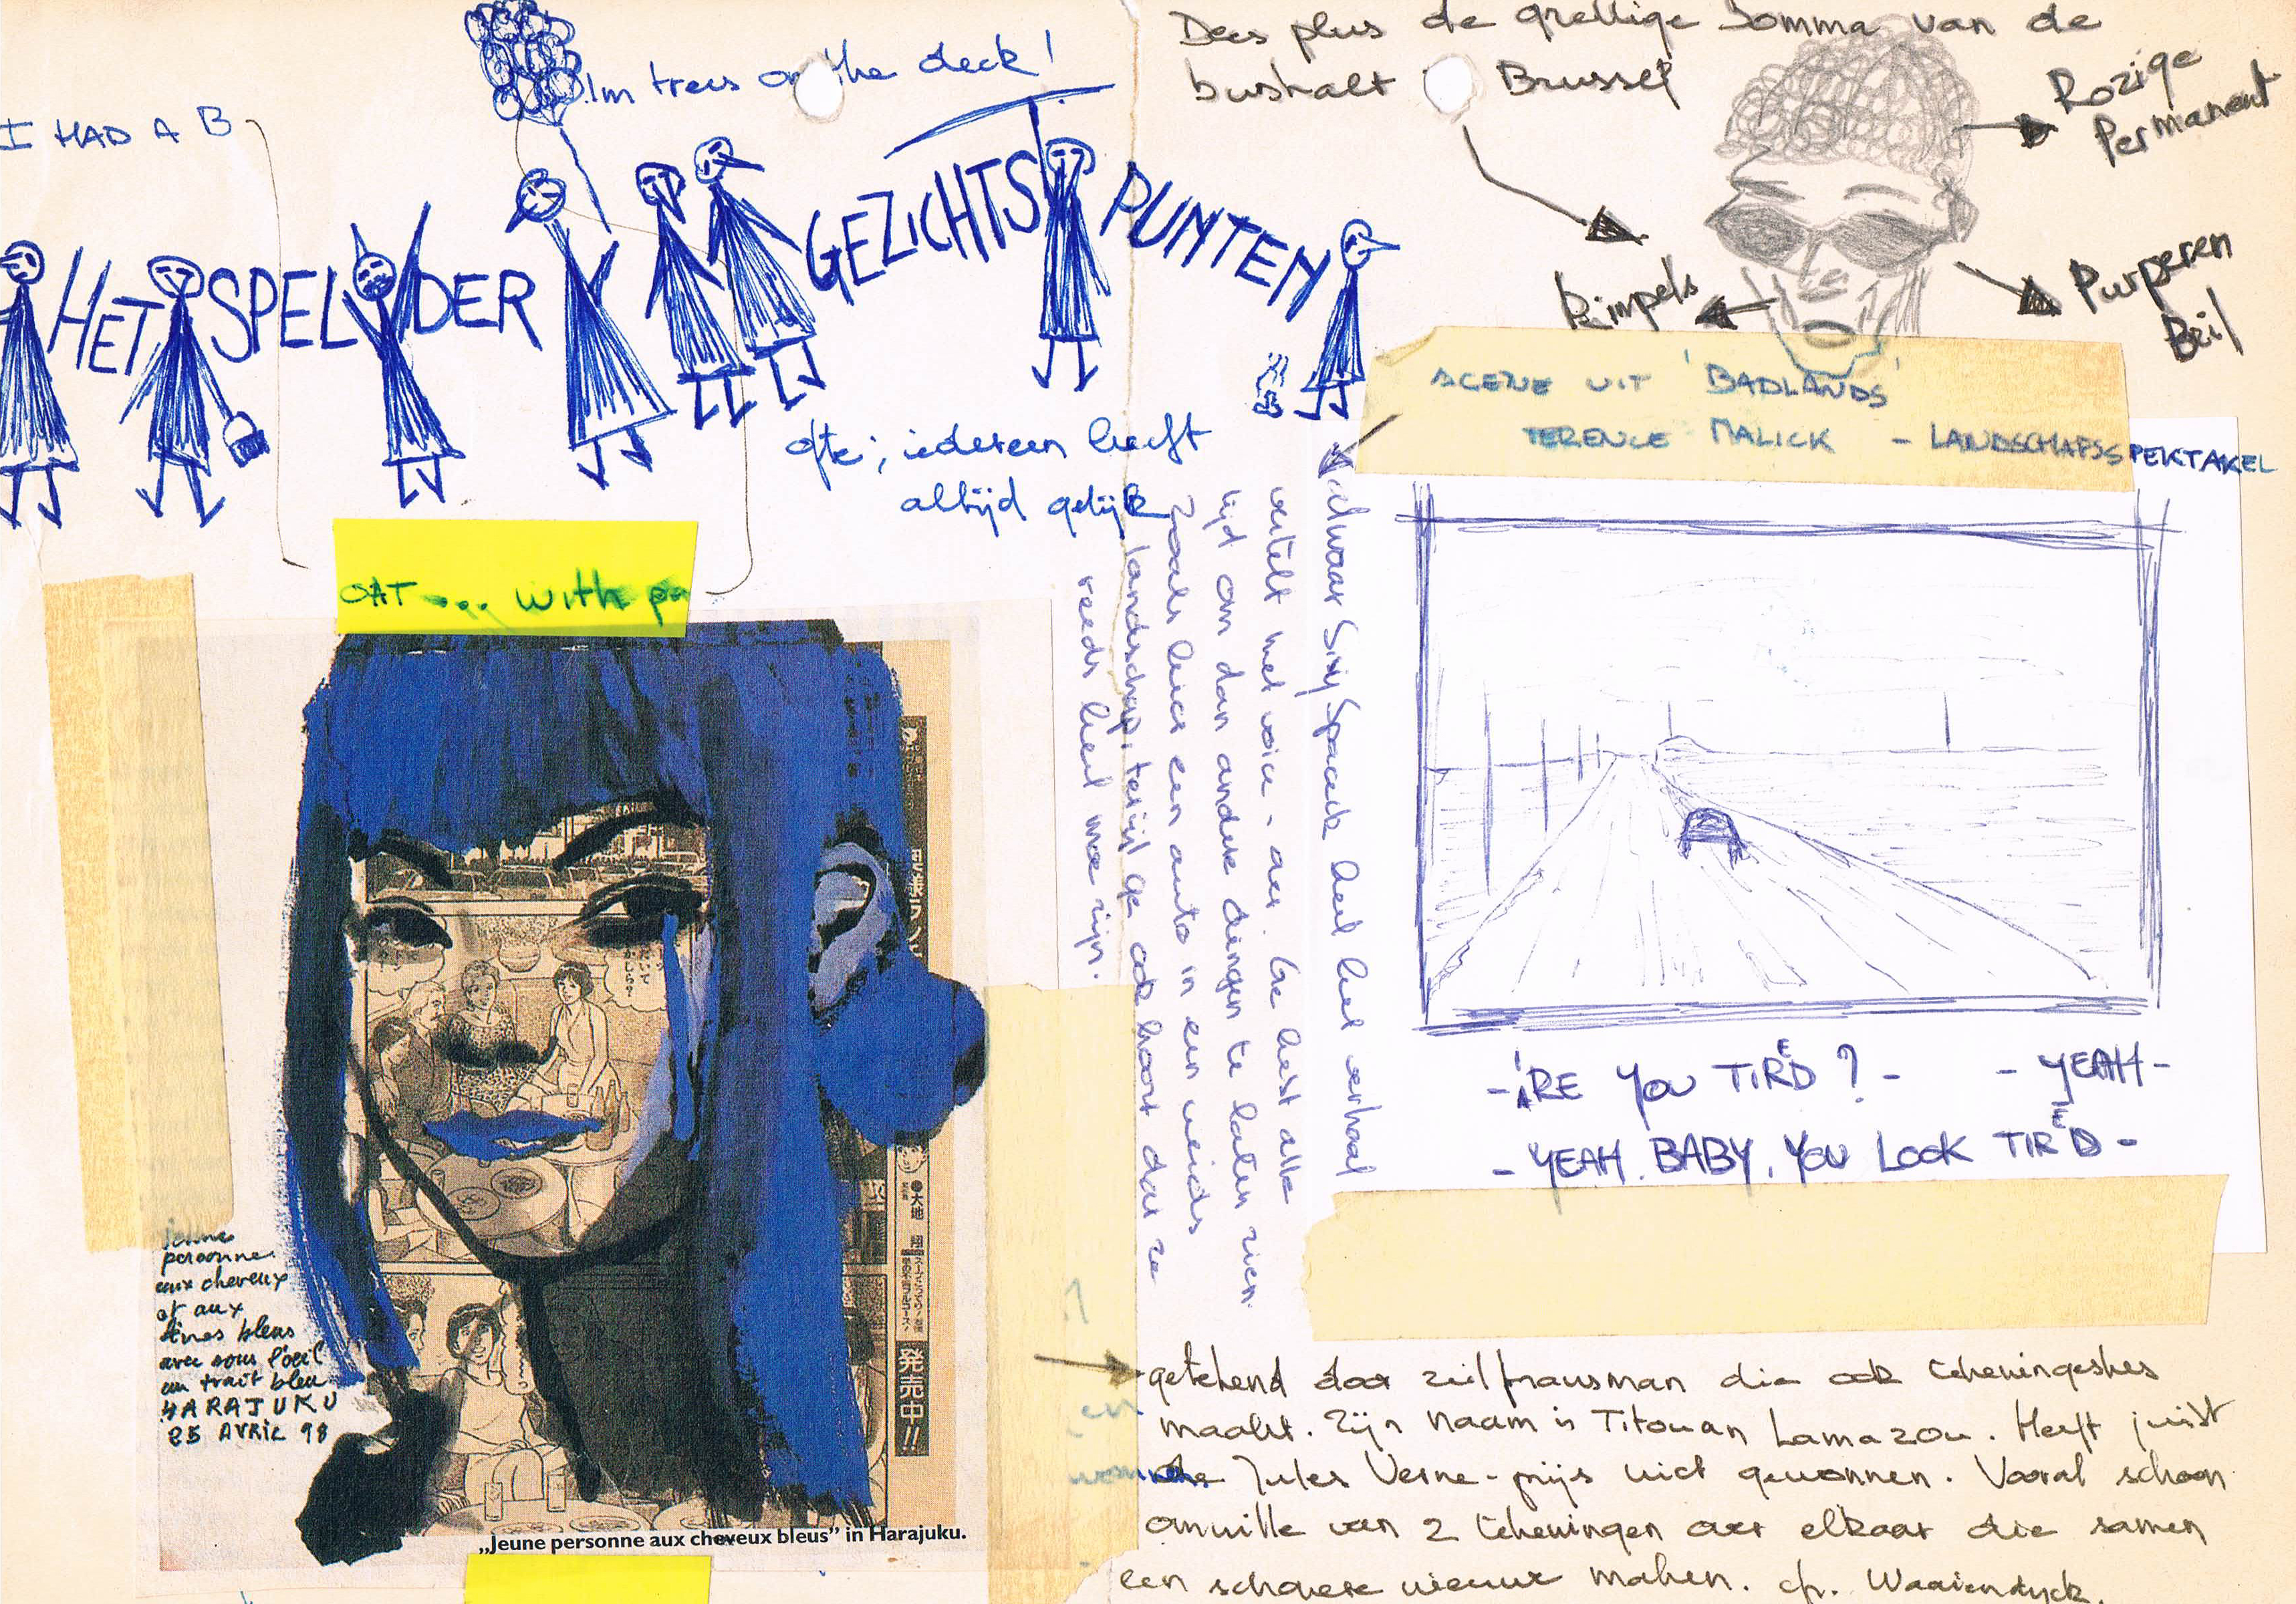 I HAD A B
OAT ... with pa
palm trees on the deck!
HET SPEL DER GEZICHTSPUNTEN
ofte; iedereen heeft
altijd gelijk
Dees plus de grellige bomma van de
bushalt Brussel
Rozige
Permanent
Rimpels
Purperen
Bril
SCENE UIT 'BADLANDS'
TERENCE MALICK - LANDSCHAPSSPEKTAKEL
alwaar Sissy Spacek heel het verhaal
vertelt met voice-over. Ge hebt alle
tijd om dan andere dingen te laten zien.
zoals hier een auto in een weids
landschap, terwijl ge ook hoort dat ze
reeds heel moe zijn.
- ARE YOU TIRED ? - - YEAH -
- YEAH. BABY. YOU LOOK TIRED -
jeune
personne
aux cheveux
et aux
lèvres bleus
avec sous l'oeil
un trait bleu
HARAJUKU
25 AVRIL 98
大地
翔
発売中!!
„Jeune personne aux cheveux bleus” in Harajuku.
getekend door zeilfransman die ook tekeningeskes
maakt. Zijn naam is Titouan Lamazou. Heeft juist
de Jules Verne-prijs niet gewonnen. Vooral schoon
omwille van 2 tekeningen over elkaar die samen
een schoere nieuwe maken. cfr. Waaiendyck.